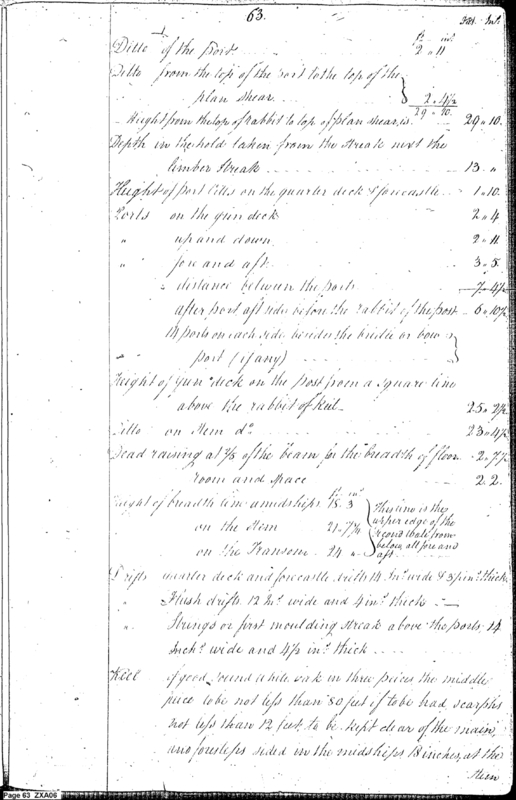 63.
Feet. Int.
Ft. int.
Ditto of the Port 2 " 11
Ditto from the top of the Port to the top of the
plan shear 2 " 4½
29 " 10.
Height from the top of rabbit to top of plan shear, is 29 " 10.
Depth in the hold taken from the Streak next the
limber Streak 13 "
Height of port Cills on the quarter deck & forecastle 1 " 10.
Ports on the gun deck 2 " 4
" up and down 2 " 11
" fore and aft 3 " 5
" distance between the ports 7 " 4½
after port aft side before the rabbit of the post 6 " 10½
14 ports on each side besides the bridle or bow
" port (if any)
Height of Gun deck on the Post from a square line
above the rabbit of Keel 25 " 2½
Ditto on Stem do. 23 " 4½
Dead raising at ⅔ of the beam for the breadth of floor 2 " 7½
room and space 2 " 2
Ft. ins.
Height of breadth line amidships 18 " 3
on the Stem 21 "
on the Transom 24 "
This line is the
upper edge of the
second thate from
below, all fore and
aft
Drifts quarter deck and forecastle drifts 14 Ins. wide & 3½ ins. thick
" Flush drifts 12 Ins. wide and 4 ins. thick
" Strings or first moulding Streak above the ports 14
Inchs. wide and 4½ ins. thick
Keel of good, sound white oak in three pieces, the middle
piece to be not less than 80 feet if to be had scarphs
not less than 12 feet, to be kept clear of the main,
and foresteps sided in the midships 18 inches, at the
Stem
Page 63 ZXA06